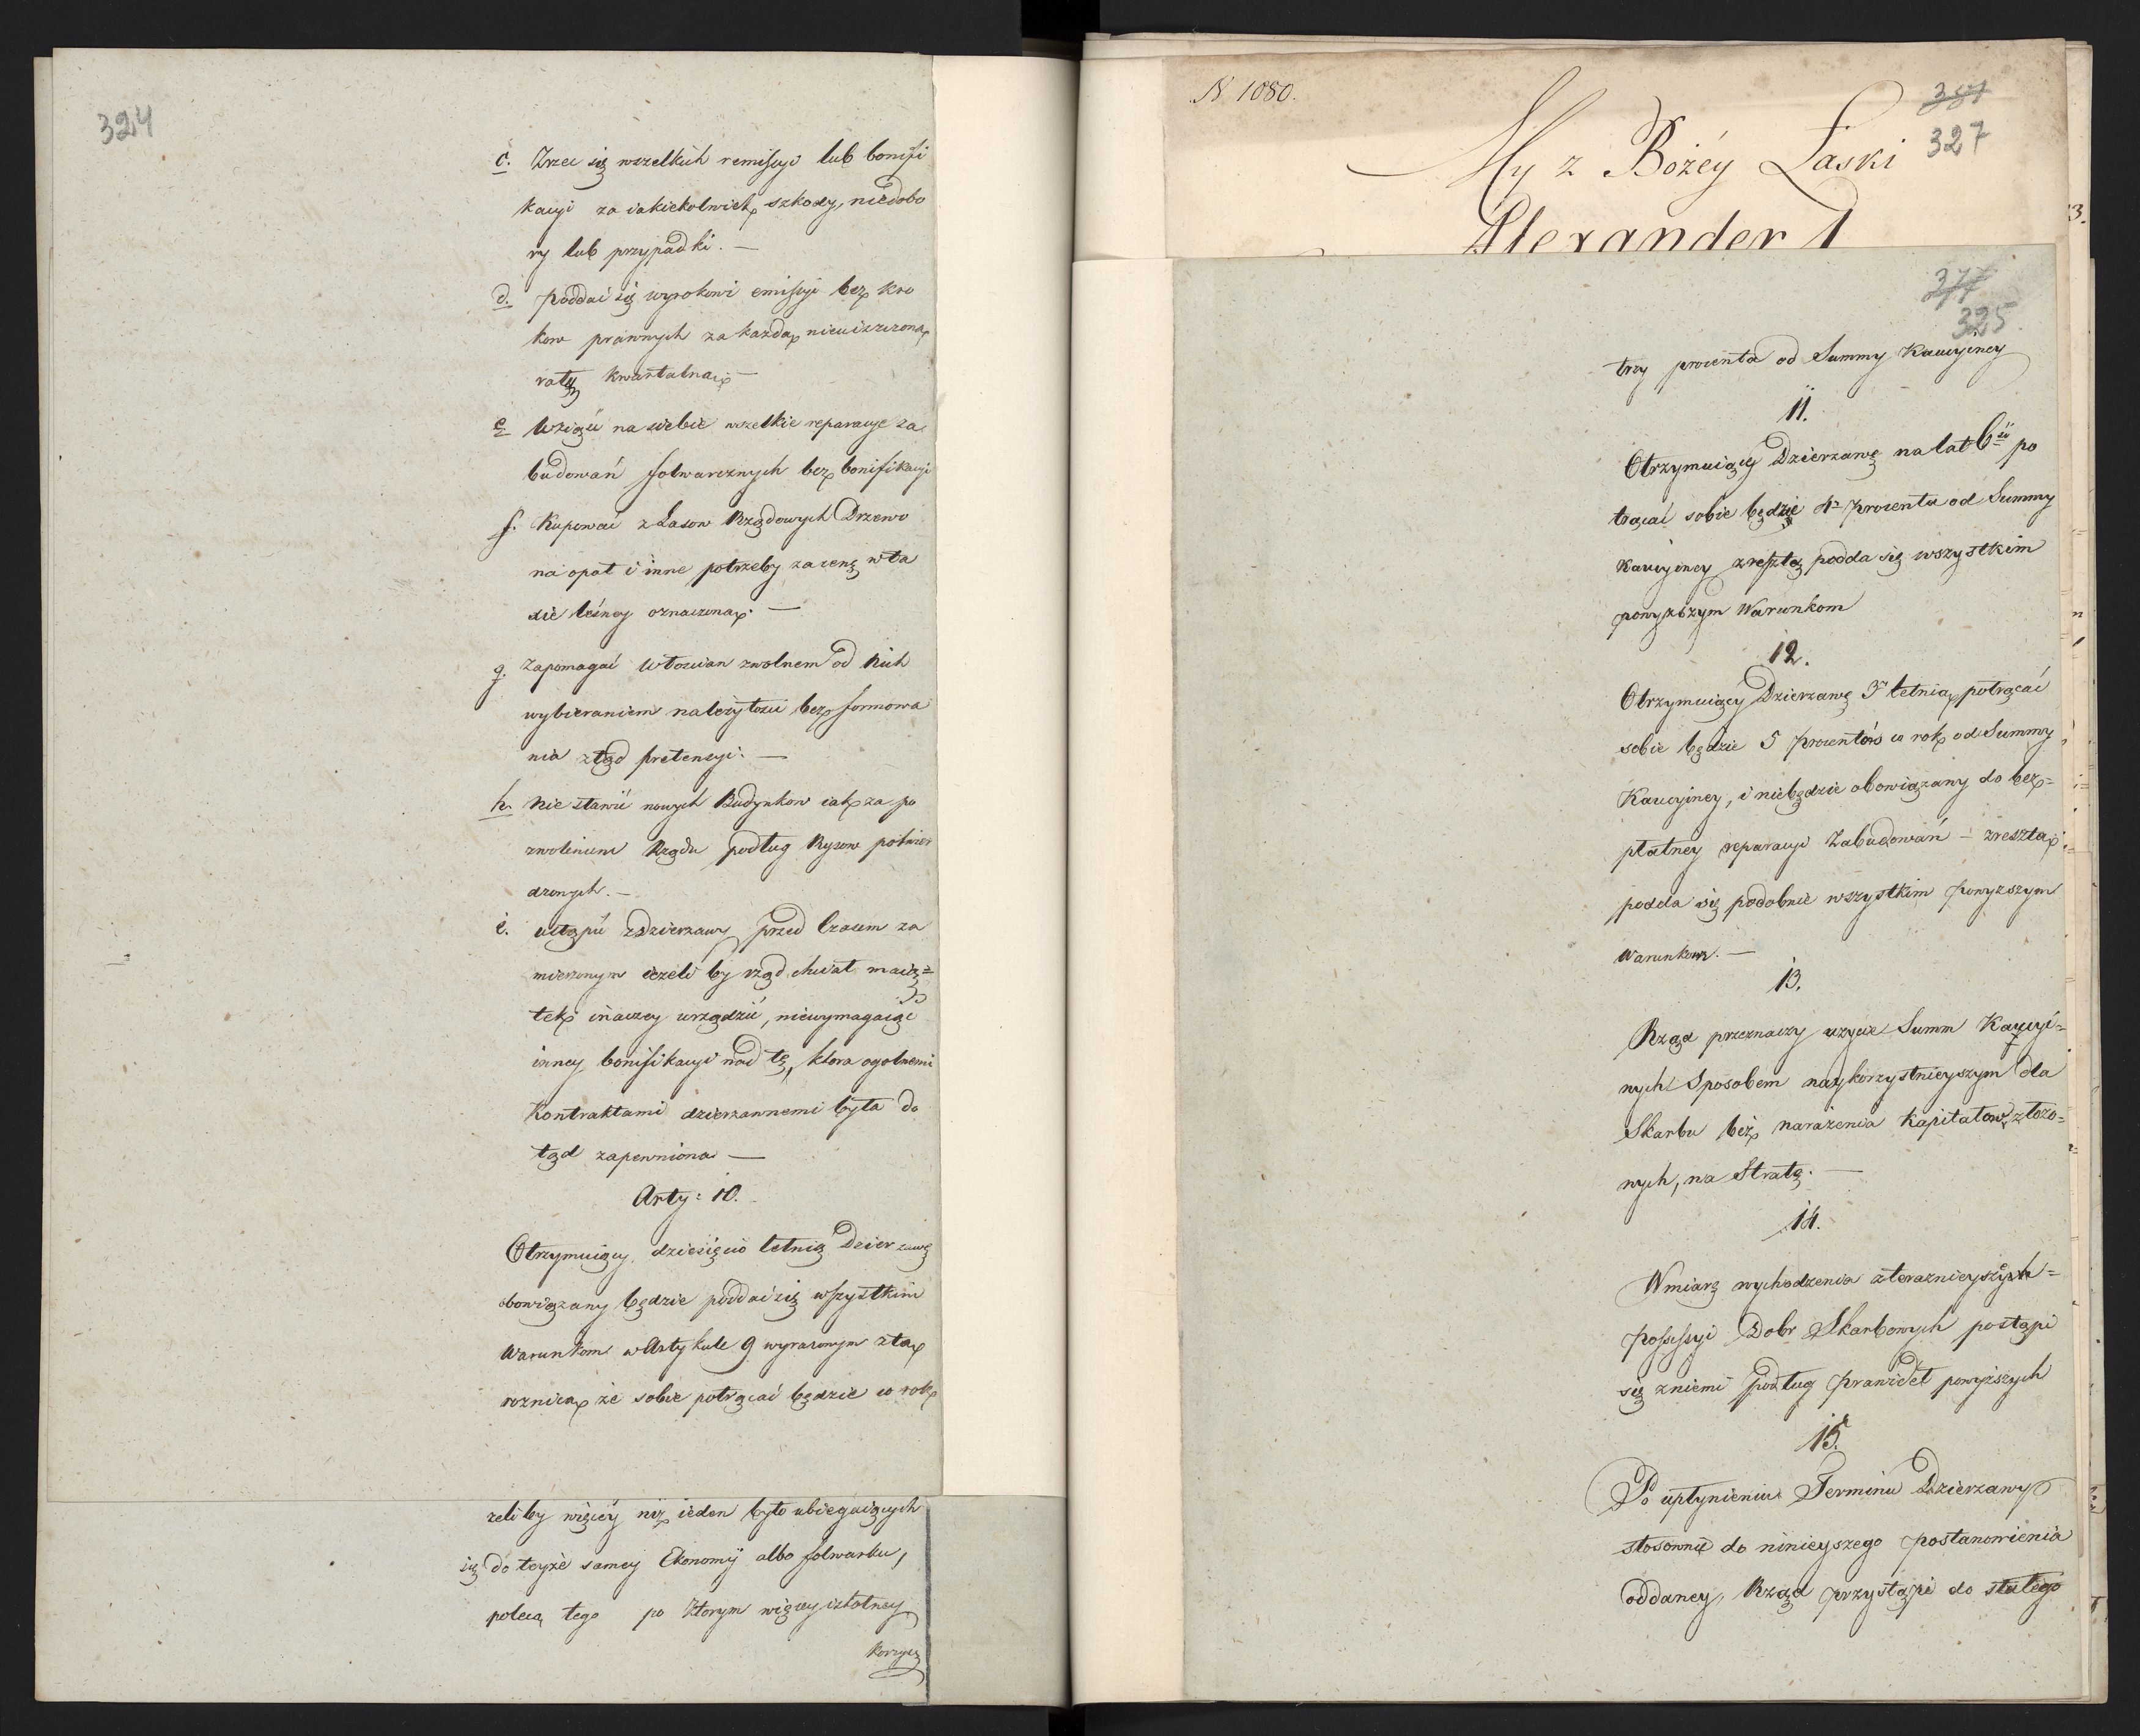 324
c. Zrzec się wszelkich remissyi lub bonifi
kacyi za iakiekolwiek szkody, niedobo
ry lub przypadki. —
d. poddać się wyrokowi emissyi bez kro
kow prawnych za każdą nieuiszczoną
ratę kwartalną —
e wziąść na siebie wszelkie reparacye za
budowań folwarcznych bez bonifikacyi
f. Kupować z Lasow Rządowych Drzewo
na opał i inne potrzeby za cenę w ta
xie leśney oznaczoną. —
g. zapomagać Włościan zwolnem od nich
wybieraniem należytości bez formowa
nia ztąd pretensyi. —
h. nie stawić nowych Budynkow iak za po
zwoleniem Rządu podług Rysow potwier
dzonych. —
i. ustąpić z dzierzawy przed Czasem za
mierzonym ieżeli by rząd chciał maią=
tek inaczey urządzić, niewymagaiąc
inney bonifikacyi nad tę, ktora ogolnemi
Kontraktami dzierzawnemi była do
tąd zapewniona —
Arty: 10.
Otrzymuiący dziesięcio letnią Dzierzawę
obowiązany będzie poddać się wszystkim
Warunkom w Artykule 9 wyrażonym z tą
roznicą że sobie potrącać będzie co rok
żeliby więcéy niż ieden było ubiegaiących
się do teyże samey Ekonomij albo folwarku,
polecą tego po ktorym więcey istotney
Korzyści
N 1080.
387
327
My z Bożéy Łaski
Alexander I
377
325
trzy procenta od Summy Kaucyiney
11.
Otrzymuiący Dzierzawę na lat 6ść po
trącać sobie będzie 4ry procenta od Summy
kaucyiney zresztą podda się wszystkim
powyższym Warunkom
12.
Otrzymuiący Dzierzawę 3 letnią, potrącać
sobie będzie 5 procentów co rok od Summy
Kaucyiney, i niebędzie obowiązany do bez=
płatney reparacyi Zabudowań — zresztą
podda się podobnie wszystkim powyzszym
Warunkom. —
13.
Rząd przeznaczy uzycie Summ Kaucyi=
nych Sposobem naykorzystnieyszym dla
Skarbu bez narażenia Kapitałow złożo=
nych, na Stratę. —
14.
W miarę wychodzenia z teraznieyszych=
possessyi Dobr Skarbowych postąpi
się z niemi podług prawideł powyższych
15.
Po upłynieniu Terminu Dzierzawy
stosownie do ninieyszego postanowienia
oddaney, Rząd przystąpi do stałego